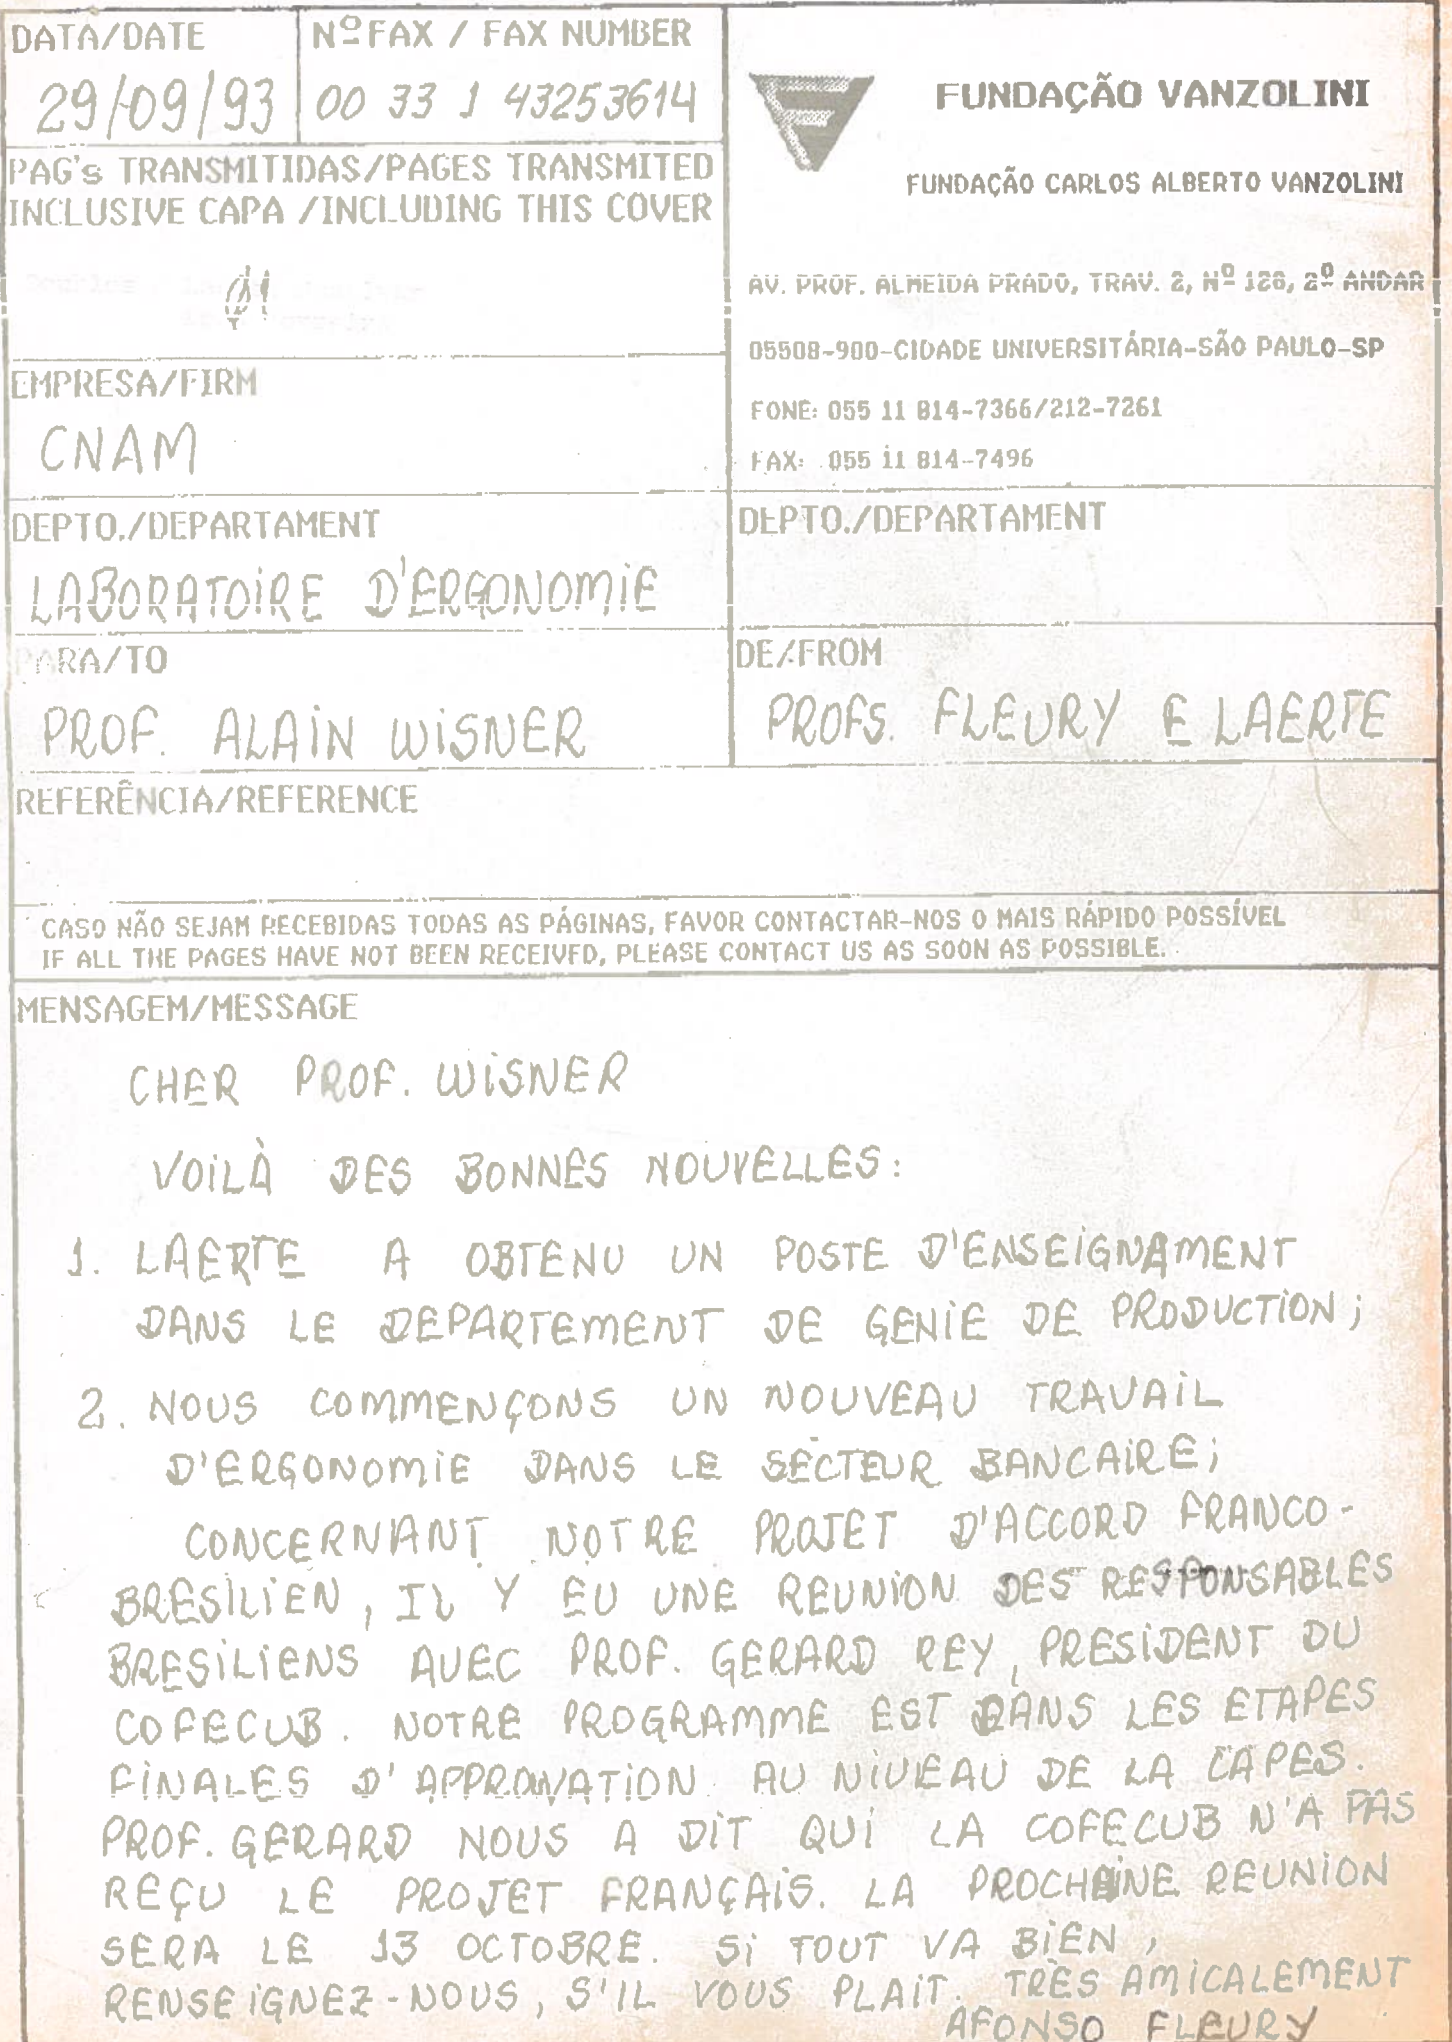 DATA/DATE
29/09/93
Nº FAX / FAX NUMBER
00 33 1 43253614
PAG's TRANSMITIDAS/PAGES TRANSMITED
INCLUSIVE CAPA /INCLUDING THIS COVER
01
FUNDAÇÃO VANZOLINI
FUNDAÇÃO CARLOS ALBERTO VANZOLINI
AV. PROF. ALMEIDA PRADO, TRAV. 2, Nº 128, 2º ANDAR
05508-900-CIDADE UNIVERSITÁRIA-SÃO PAULO-SP
FONE: 055 11 814-7366/212-7261
FAX: 055 11 814-7496
EMPRESA/FIRM
CNAM
DEPTO./DEPARTAMENT
LABORATOIRE D'ERGONOMIE
DEPTO./DEPARTAMENT
PARA/TO
PROF. ALAIN WISNER
DE/FROM
PROFS. FLEURY E LAERTE
REFERÊNCIA/REFERENCE
CASO NÃO SEJAM RECEBIDAS TODAS AS PÁGINAS, FAVOR CONTACTAR-NOS O MAIS RÁPIDO POSSÍVEL
IF ALL THE PAGES HAVE NOT BEEN RECEIVED, PLEASE CONTACT US AS SOON AS POSSIBLE.
MENSAGEM/MESSAGE
CHER PROF. WISNER
VOILÀ DES BONNES NOUVELLES:
1. LAERTE A OBTENU UN POSTE D'ENSEIGNAMENT
DANS LE DEPARTEMENT DE GENIE DE PRODUCTION;
2. NOUS COMMENÇONS UN NOUVEAU TRAVAIL
D'ERGONOMIE DANS LE SECTEUR BANCAIRE;
CONCERNANT NOTRE PROJET D'ACCORD FRANCO-
BRESILIEN, IL Y EU UNE REUNION DES RESPONSABLES
BRESILIENS AVEC PROF. GERARD REY, PRESIDENT DU
COFECUB. NOTRE PROGRAMME EST DANS LES ETAPES
FINALES D'APPROVATION AU NIVEAU DE LA CAPES.
PROF. GERARD NOUS A DIT QUI LA COFECUB N'A PAS
REÇU LE PROJET FRANÇAIS. LA PROCHAINE REUNION
SERA LE 13 OCTOBRE. SI TOUT VA BIEN,
RENSEIGNEZ-NOUS, S'IL VOUS PLAIT. TRES AMICALEMENT
AFONSO FLEURY